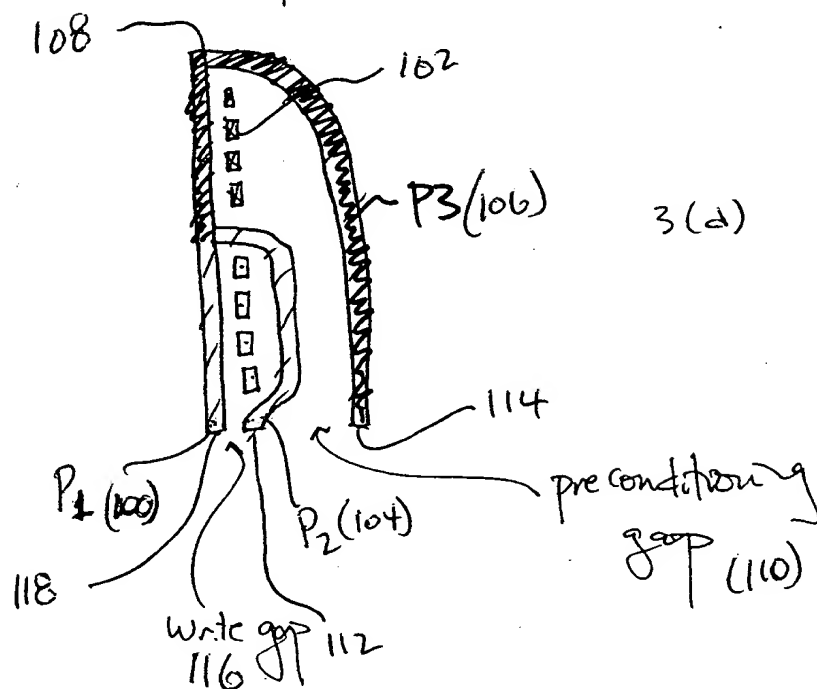 108
102
P3(106)
3(d)
114
P1 (100)
P2(104)
preconditioning
gap (110)
118
write gap 112
116